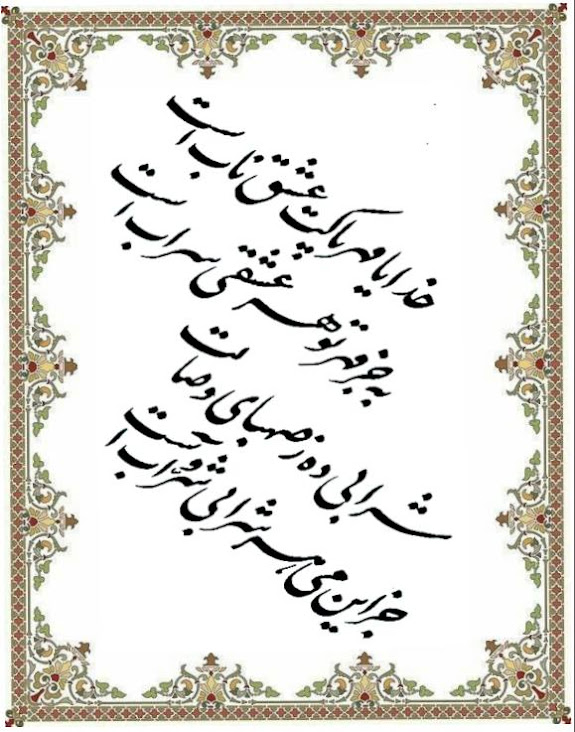 خدایا مهر پاکت عشق ناب است
به جز مهر تو هر عشقی سراب است
شرابی ده ز صهبای وصالت
جز این می هر شرابی شر و آب است